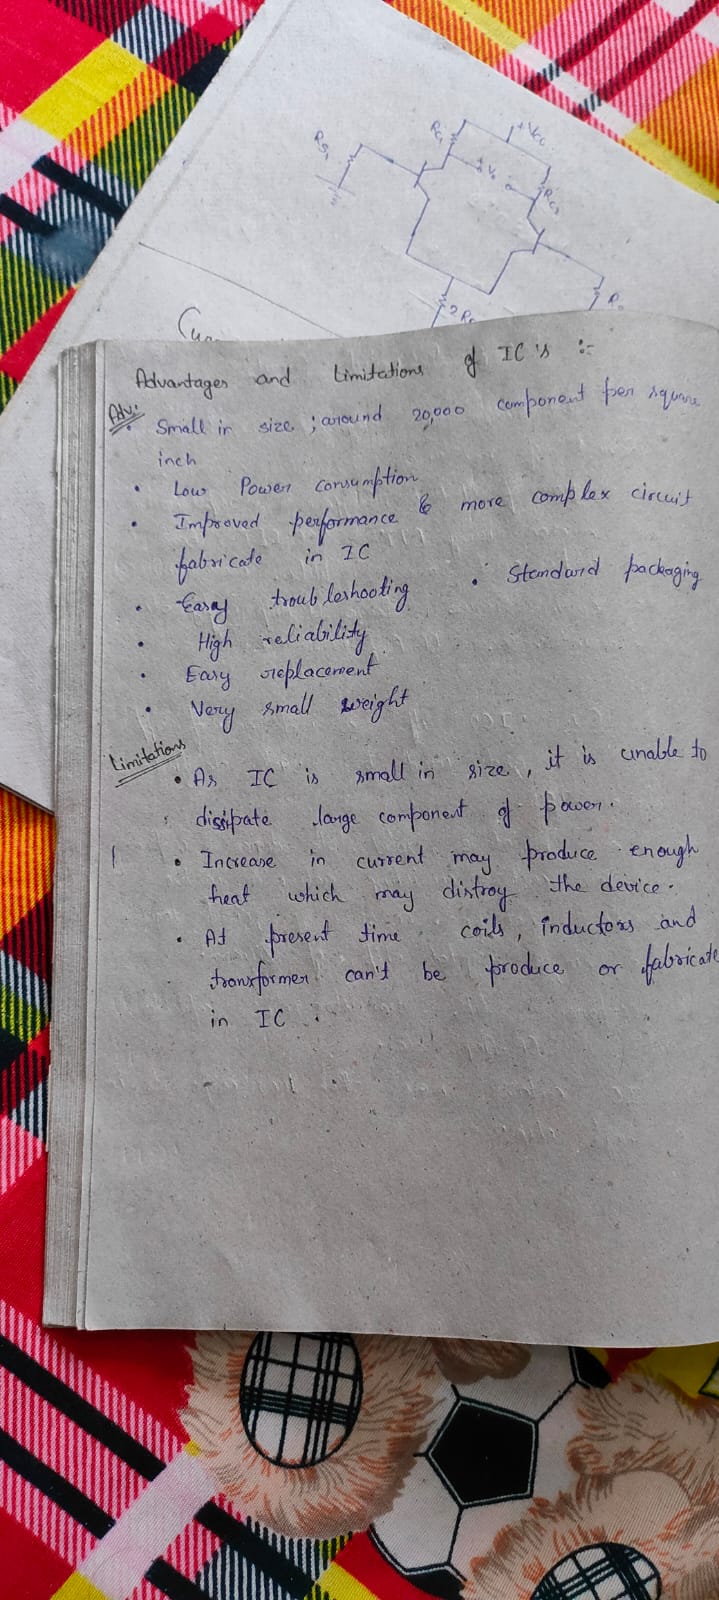 RS1
RC1
+VCC
+ Vo
RC2
2RE
Advantages and Limitations of IC's :-
Adv:
• Small in size ; around 20,000 component per square
inch
• Low Power consumption
• Improved performance & more complex circuit
fabricate in IC
• Easy troubleshooting • Standard packaging
• High reliability
• Easy replacement
• Very small weight
Limitations
• As IC is small in size, it is unable to
dissipate large component of power.
• Increase in current may produce enough
heat which may distroy the device.
• At present time coils, inductors and
transformer can't be produce or fabricate
in IC.